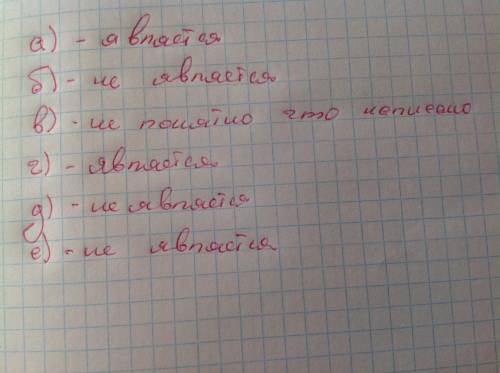 а) - является
б) - не является
в) - не понятно что написано
г) - является
д) - не является
е) - не является